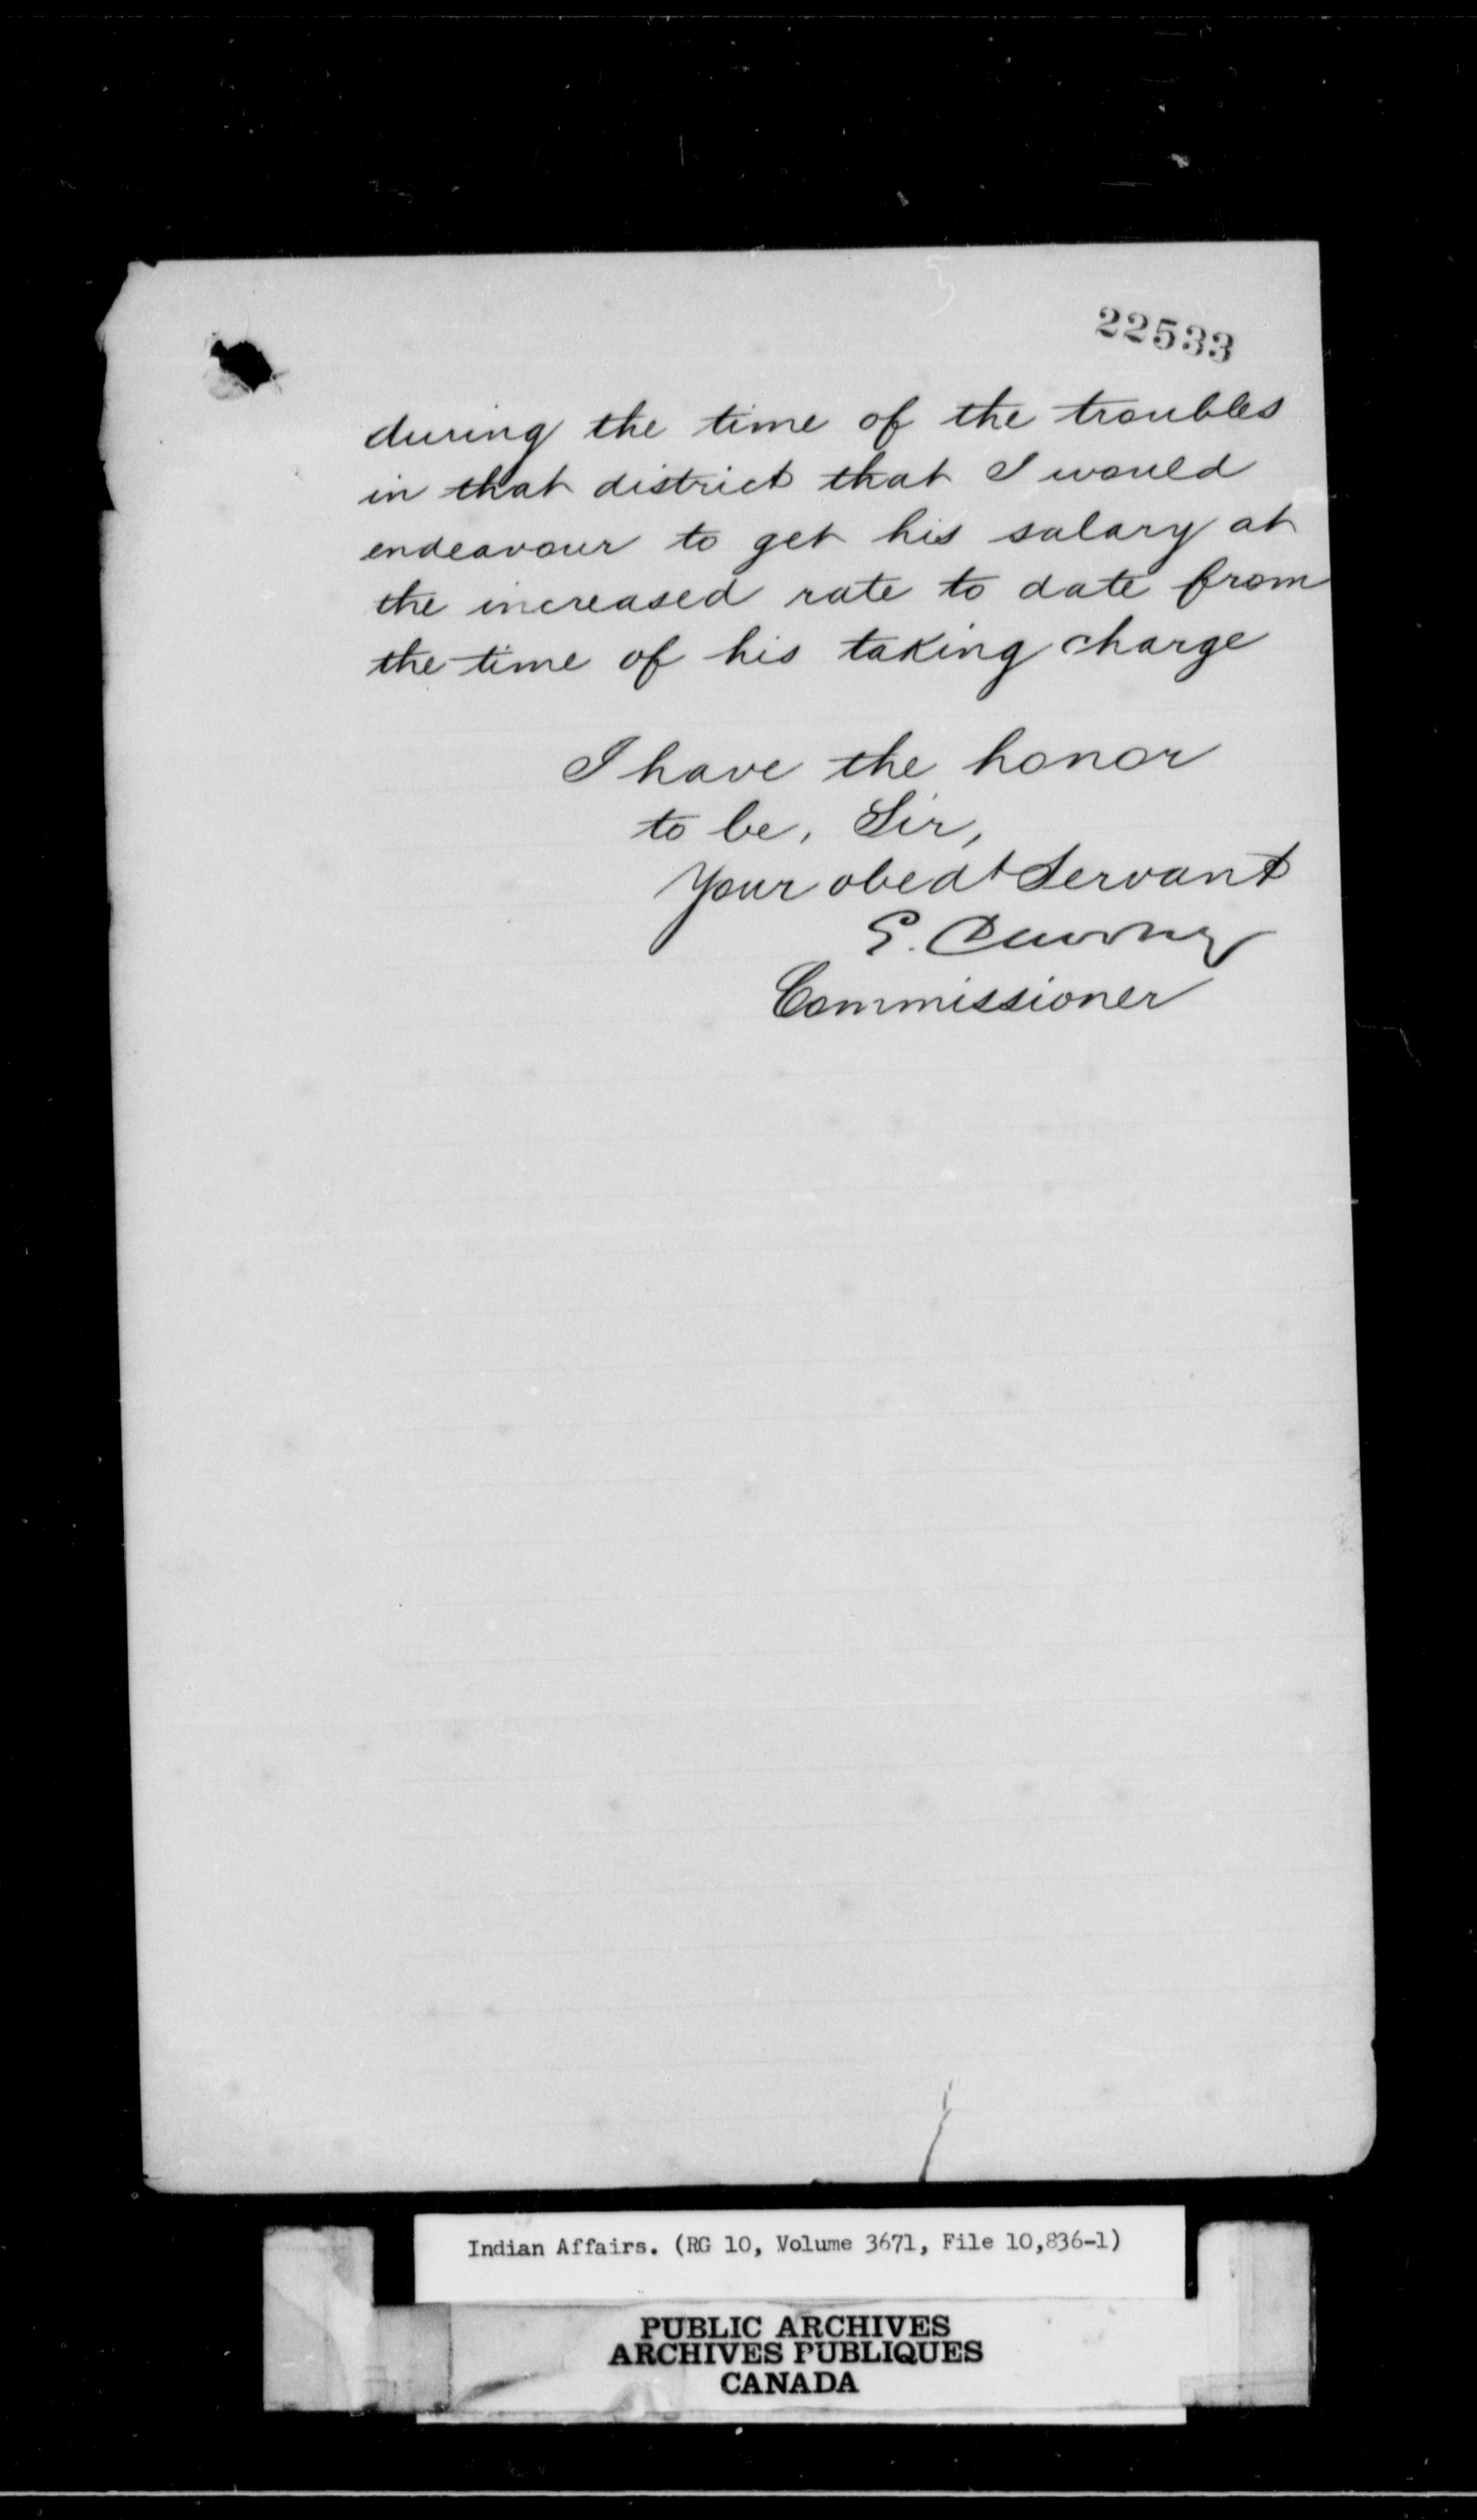 22533
during the time of the troubles
in that district that I would
endeavour to get his salary at
the increased rate to date from
the time of his taking charge
I have the honor
to be, Sir,
Your obedt Servant
E. Dewdney
Commissioner
Indian Affairs. (RG 10, Volume 3671, File 10,836-1)
PUBLIC ARCHIVES
ARCHIVES PUBLIQUES
CANADA